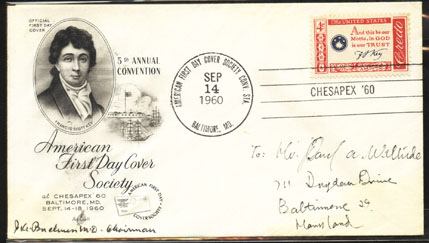 OFFICIAL
FIRST DAY
COVER
5th ANNUAL
CONVENTION
FRANCIS SCOTT KEY
American
First Day Cover
Society
at CHESAPEX 60
BALTIMORE, MD.
SEPT. 14-18, 1960
AMERICAN FIRST DAY
COVER SOCIETY
M.D. - Chairman
AMERICAN FIRST DAY COVER SOCIETY CONV. STA.
SEP
14
1960
BALTIMORE, MD.
UNITED STATES
And this be our
Motto, in GOD
is our TRUST
F S Key
Credo
CHESAPEX '60
To: Mr. Carl A.
711 Dryden Drive
Baltimore 29
Maryland